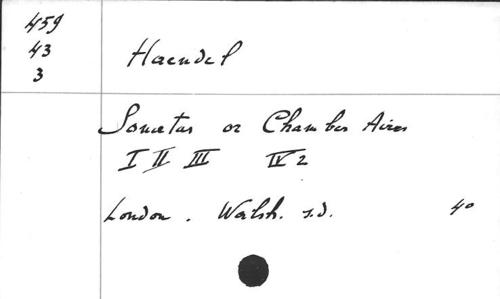 459
43
3
Haendel
Sonatas or Chamber Aires
I II III IV 2
London. Walsh. s.d. 4º